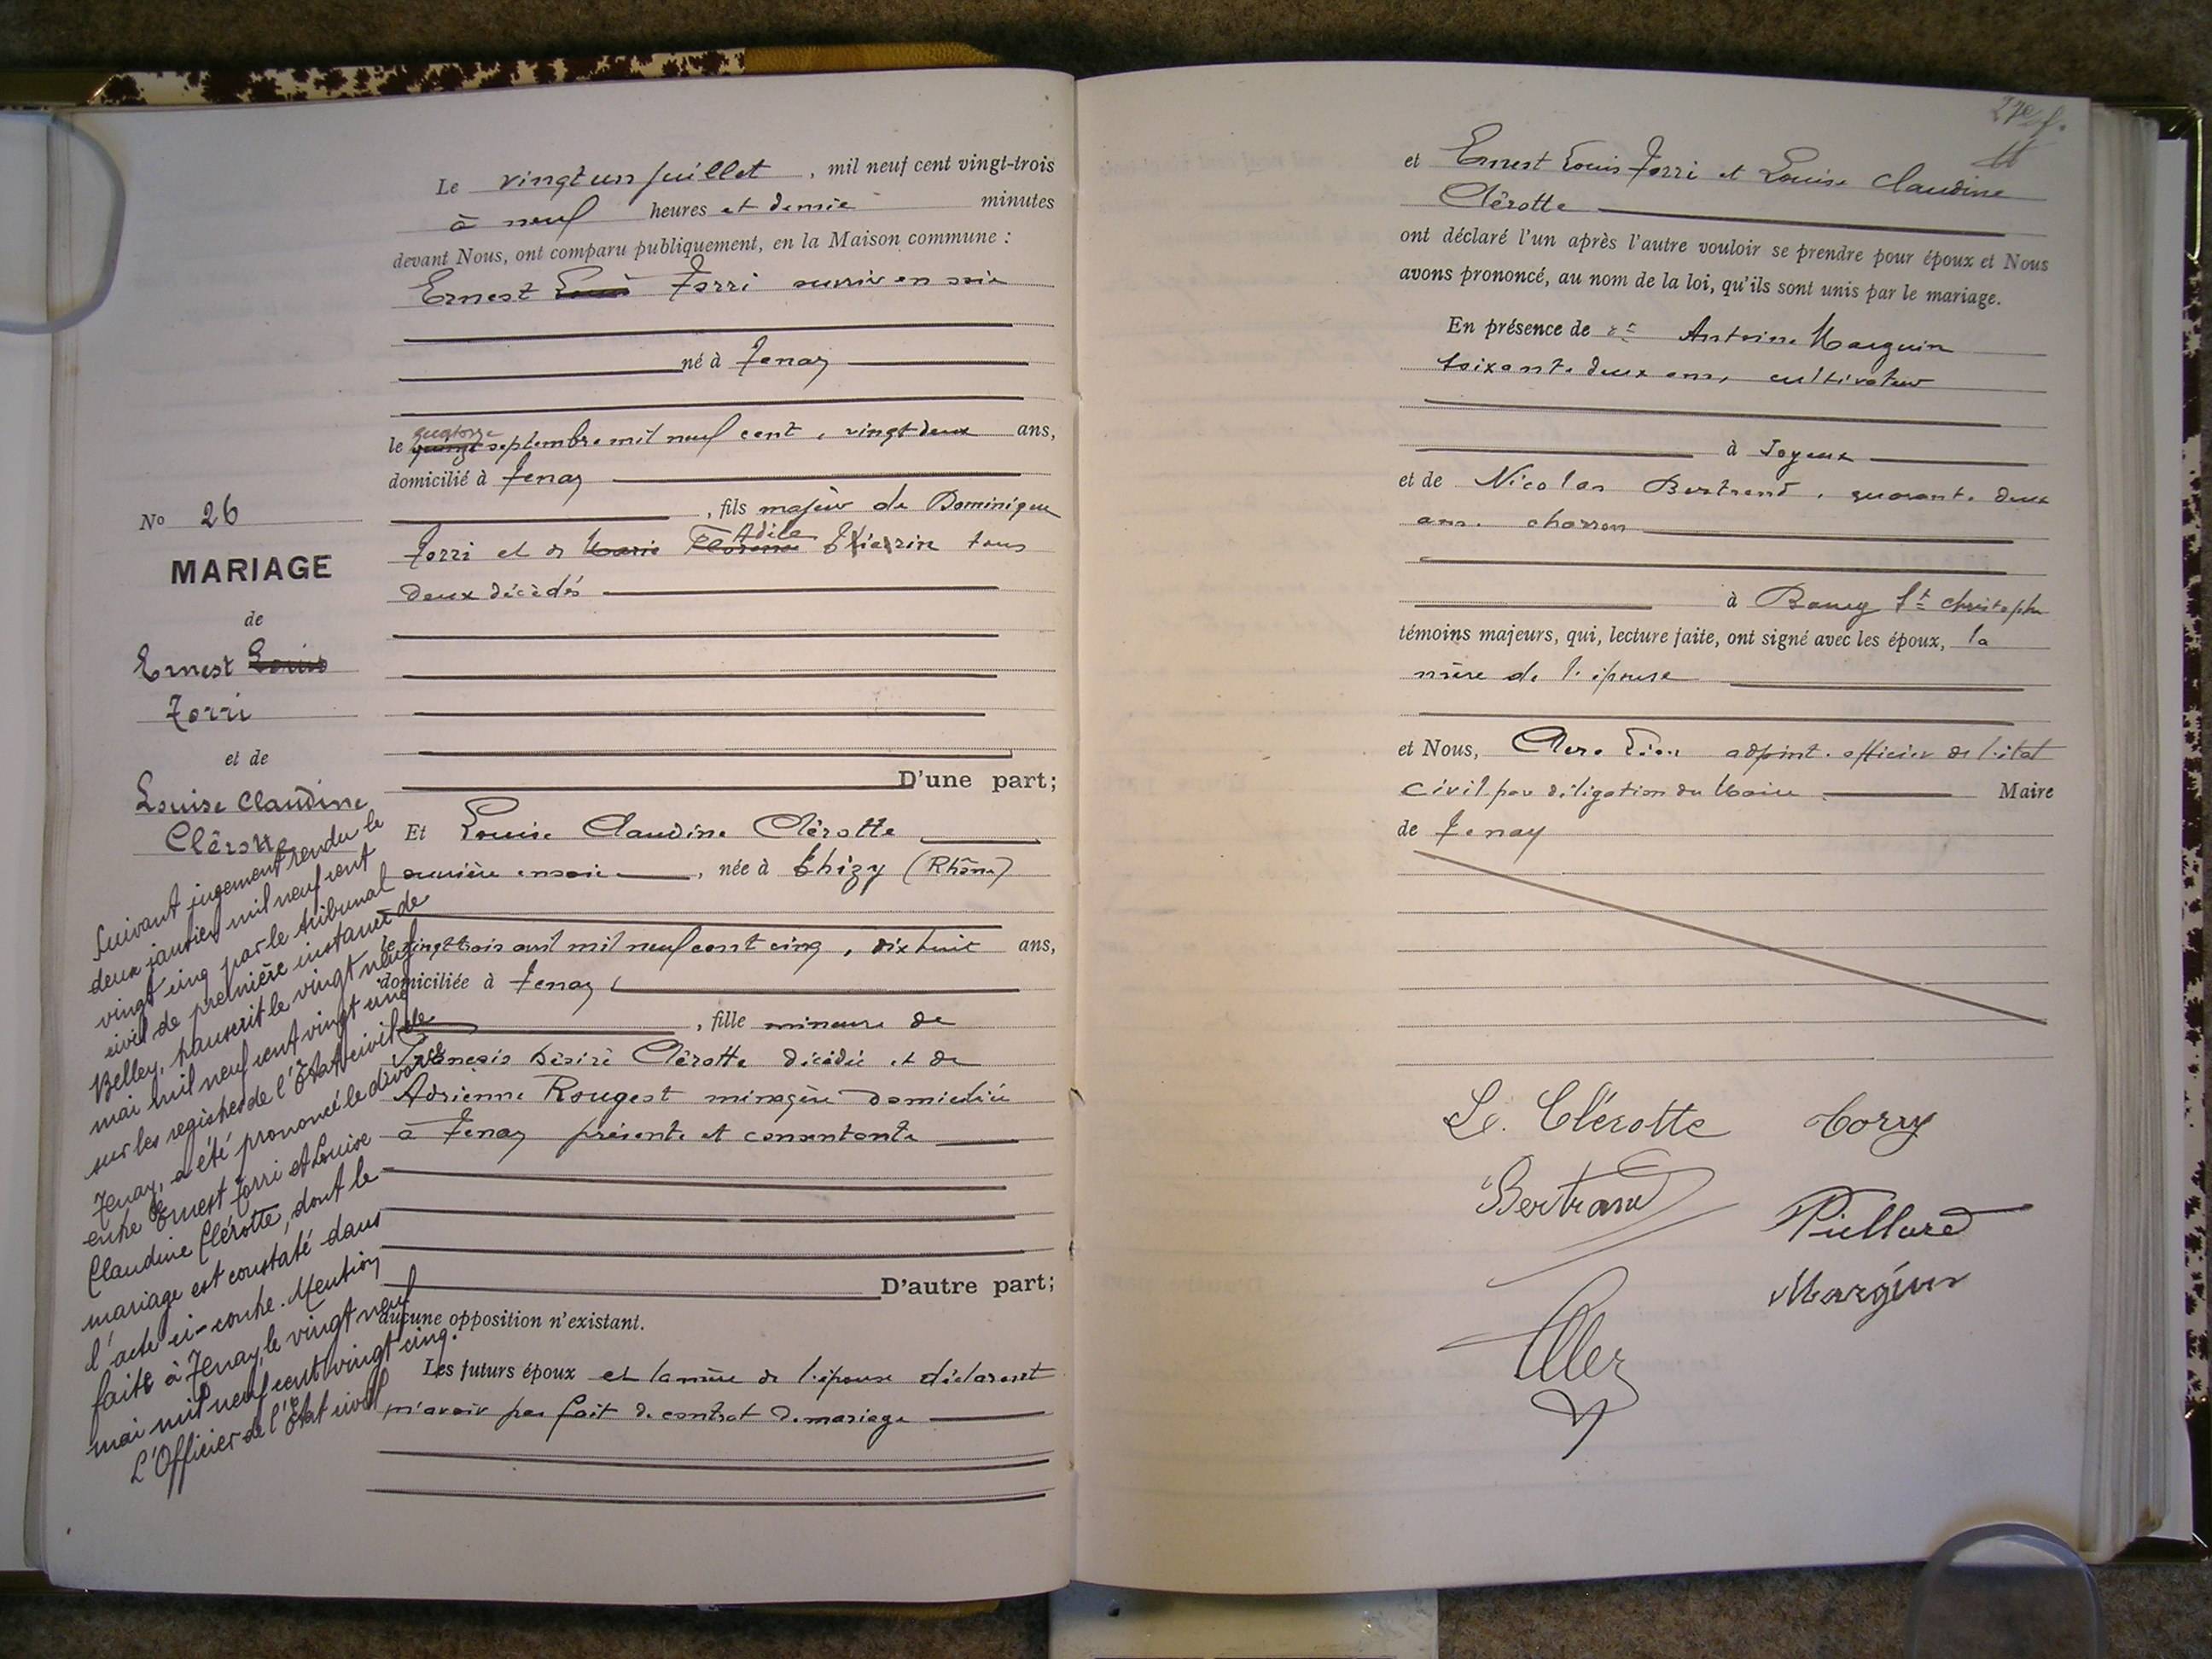 Le vingt un juillet, mil neuf cent vingt-trois
à neuf heures et demie minutes
devant Nous, ont comparu publiquement, en la Maison commune :
Ernest Louis Torri ouvrier en soie
né à Tenay
quatorze
le quinze septembre mil neuf cent, vingt deux ans,
domicilié à Tenay
, fils majeur de Dominique
Adile
Torri et de Marie Florence
tous
deux décédés
D'une part;
Et Louise Claudine Clérotte
ouvrière en soie, née à Thizy (Rhône)
le vingt trois avril mil neuf cent cinq, dix huit ans,
domiciliée à Tenay
, fille mineure de
François Désiré Clérotte décédé et de
Adrienne Rouget ménagère domiciliée
à Tenay présente et consentante
D'autre part;
aucune opposition n'existant.
Les futurs époux et la mère de l'épouse déclarent
n'avoir pas fait de contrat de mariage
No 26
MARIAGE
de
Ernest Louis
Torri
et de
Louise Claudine
Clérotte
Suivant jugement rendu le
deux janvier mil neuf cent
vingt cinq par le tribunal
civil de première instance de
Belley, transcrit le vingt neuf
mai mil neuf cent vingt cinq
sur les registres de l'Etat civil de
Tenay, a été prononcé le divorce
entre Ernest Torri et Louise
Claudine Clérotte, dont le
mariage est constaté dans
l'acte ci-contre. Mention
faite à Tenay, le vingt neuf
mai mil neuf cent vingt cinq.
L'Officier de l'Etat civil
27e f.
et Ernest Louis Torri et Louise Claudine
Clérotte
ont déclaré l'un après l'autre vouloir se prendre pour époux et Nous
avons prononcé, au nom de la loi, qu'ils sont unis par le mariage.
En présence de Antoine Marguin
soixante deux ans, cultivateur
à Joyeux
et de Nicolas Bertrand, quarante deux
ans. charron
à St Christophe
témoins majeurs, qui, lecture faite, ont signé avec les époux, la
mère de l'épouse
et Nous, adjoint. officier de l'état
civil par délégation du Maire Maire
de Tenay
Le. Clérotte Torry
Bertrand
Marguin